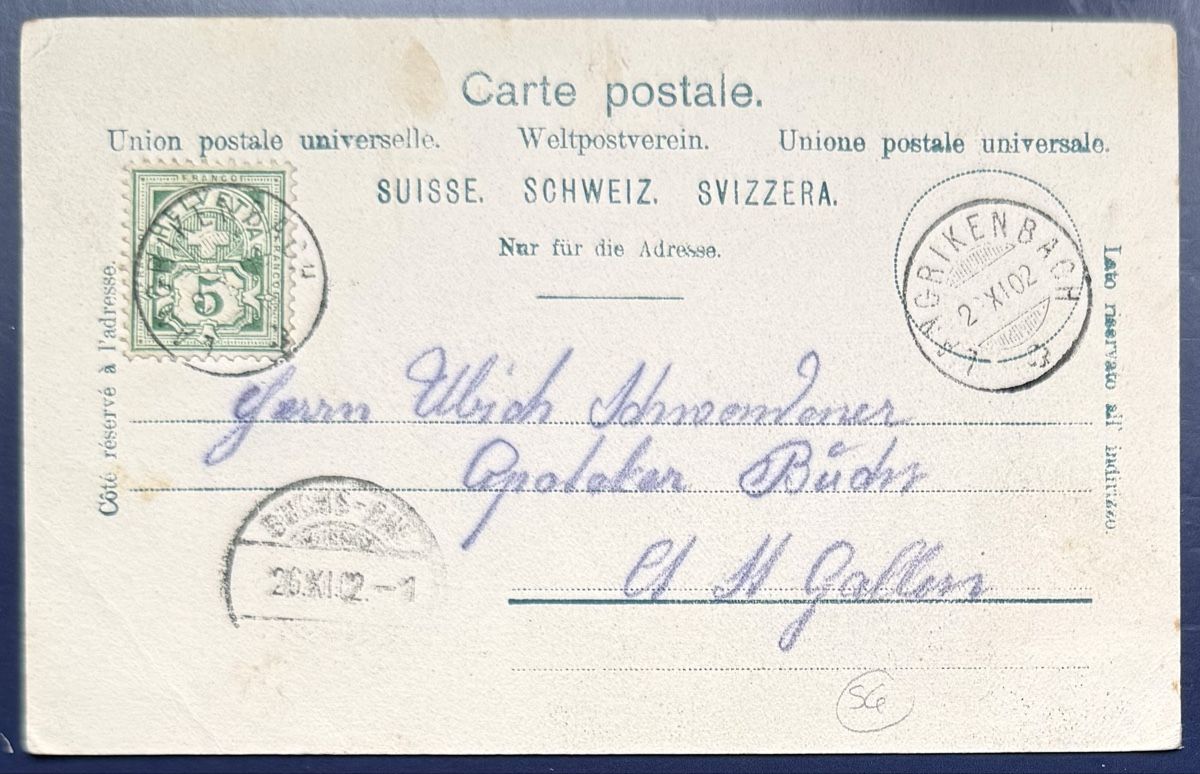 Carte postale.
Union postale universelle. Weltpostverein. Unione postale universale.
SUISSE. SCHWEIZ. SVIZZERA.
Nur für die Adresse.
Côté réservé à l'adresse.
Lato riservato all' indirizzo.
FRANCO
HELVETIA
5
GRIKENBACH
2 XI 02
Herrn Ulrich Schwendener
Apoteker Büchs
Ct St Gallen
BUCHS
26.XI.02.-1
SG